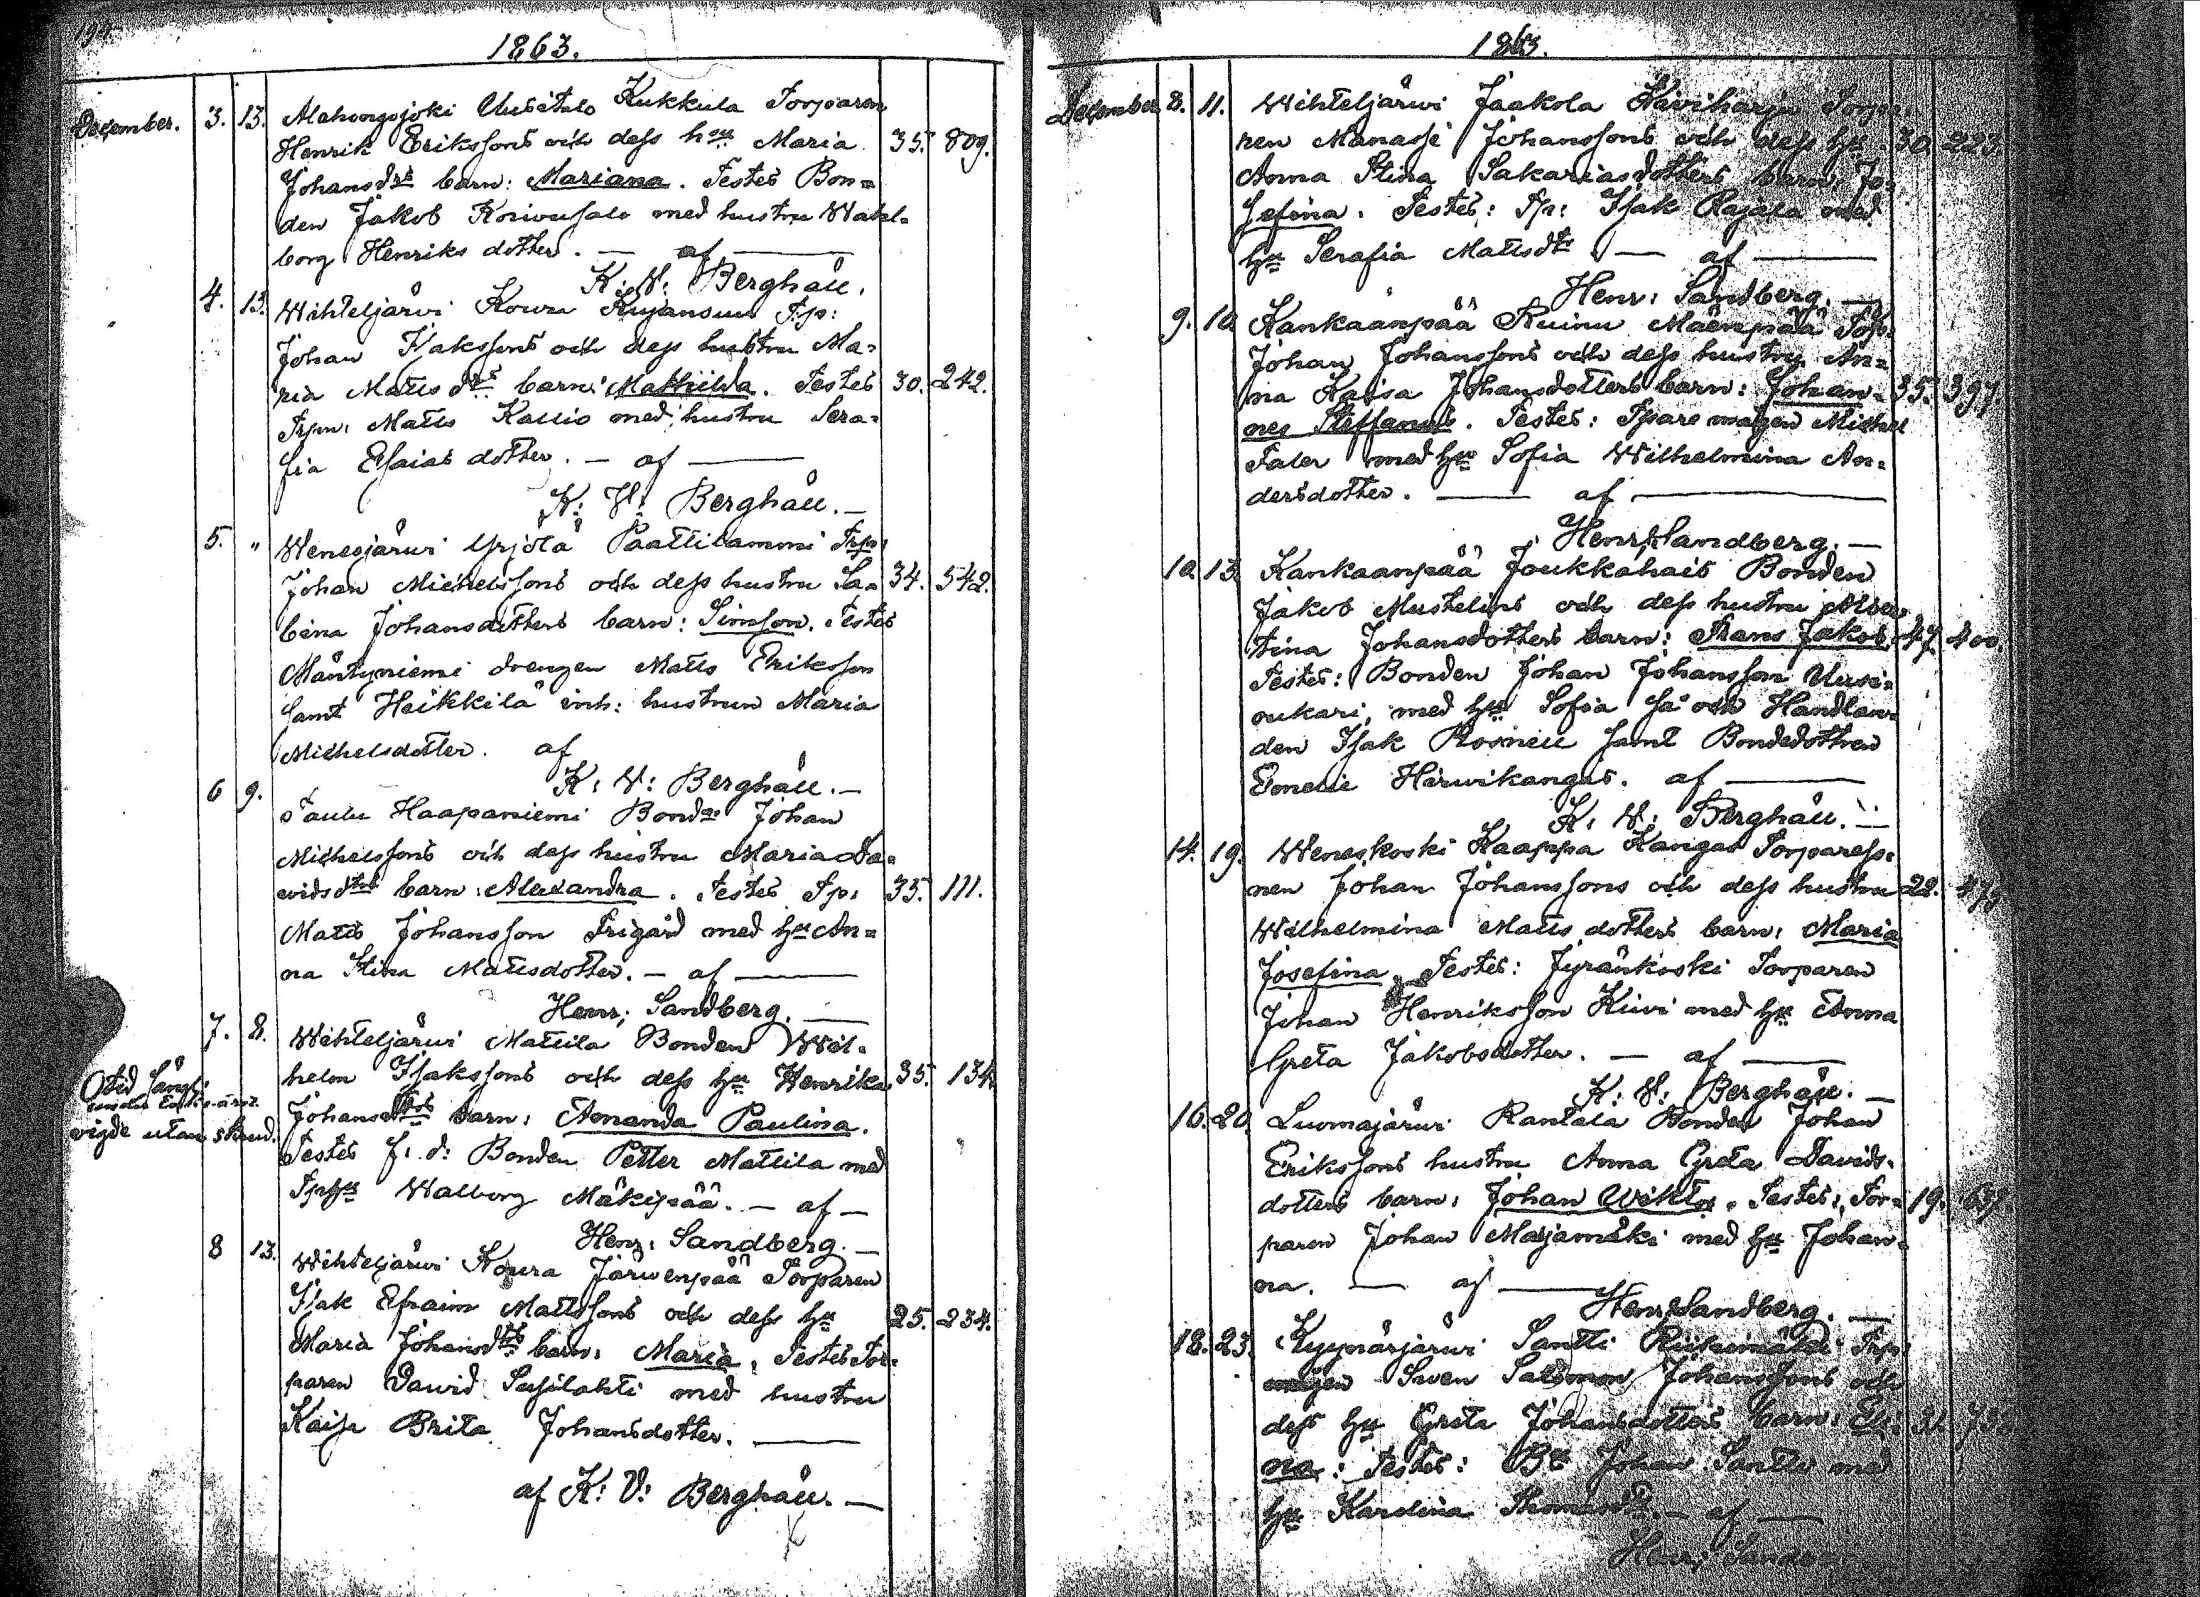 194
1863.
December. 3. 13. Alahongojoki Uusitalo Kukkula Torparen
Henrik Erikssons och dess hu Maria 35. 809.
Johansdrs barn: Mariana. Testes Bon=
den Jakob Koivusalo med hustru Wahl=
borg Henriks dotter. — af —
K. V. Berghäll.
4. 13. Wihteljärvi Kowra Kujansuu Tp:
Johan Isakssons och dess hustru Ma=
ria Matts drs barn: Mathilda. Testes 30. 242.
Trpn: Matts Kallio med hustru Sera=
fia Esaias dotter. — af —
K: V: Berghäll. —
5. " Wenesjärvi Yrjölä Paattilammi Trp:
Johan Michelssons och dess hustru Sa= 34. 542.
bina Johansdotters barn: Simson. Testes
Mäntyniemi drengen Matts Eriksson
samt Heikkilä inh: hustrun Maria
Michelsdotter. af
K: V: Berghäll. —
6 9. Haapaniemi Bondns Johan
Michelssons och dess hustru Maria Da=
vidsdtrs barn: Alexandra. Testes Tp: 35. 111.
Matts Johansson Frigård med hu An=
na Stina Mattsdotter. — af —
Henr: Sandberg. —
7. 8. Wihteljärvi Mattila Bonden Wil=
helm Isakssons och dess hu Henrika 35. 134.
Johansdtrs barn: Amanda Paulina.
vigde utan
Testes f. d: Bonden Petter Mattila med
Tphu Walborg Mäkipää. — af —
Henr: Sandberg. —
8 13. Wihteljärvi Kowra Järwenpää Torparen
Isak Efraim Mattssons och dess hu 25. 234.
Maria Johansdtrs barn: Maria. Testes Tor=
paren David Susilahti med hustru
Kaisa Brita Johansdotter. —
af K: V: Berghäll. —
1863.
December 8. 11. Wihteljärwi Jaakola Kiviharju
ren Manasse Johanssons och dess hu 30. 223.
Anna Stina Sakariasdotters barn: Jo=
sefina. Testes: Tp: Isak Rajala med
hu Serafia Mattsdtr — af —
Henr: Sandberg. —
9. 10. Kankaanpää Ruinu Mäenpää Torp:
Johan Johanssons och dess hustru An=
na Kaisa Johansdotters barn: Johan= 35. 397.
nes Steffanus. Testes: Tparemågen Michel
Taler med hu Sofia Wilhelmina An=
dersdotter. — af —
Henr: Sandberg. —
10. 13. Kankaanpää Joukkahais Bonden
Jakob Mustelins och dess hustru
tina Johansdotters barn: Frans Jakob. 47. 400.
Testes: Bonden Johan Johansson Uusi=
oukari, med hu Sofia så och Handlan=
den Isak Rosnell samt Bondedottren
Emelie Hirwikangas. af —
K. V. Berghäll. —
14. 19. Weneskoski Kaappa Kangas
nen Johan Johanssons och dess hustru 22.
Wilhelmina Matts dotters barn: Maria
Josefina. Testes: Jyränkoski Torparen
Johan Henriksson Kiivi med hu Anna
Greta Jakobsdotter. — af —
K. V: Berghäll. —
16. 20. Luomajärwi Rantala Bonden Johan
Erikssons hustru Anna Greta Davids=
dotters barn: Johan Wiktor. Testes: Tor= 19.
paren Johan Marjamäki med hu Johan=
na. — af —
Henr: Sandberg. —
18. 23. Kyynärjärwi Santti Trp:
mågen Swen Salomon Johanssons och
dess hu Greta Johansdotters barn:
na: Testes: Bn Johan Santti med
hu Karolina — af —
Henr: